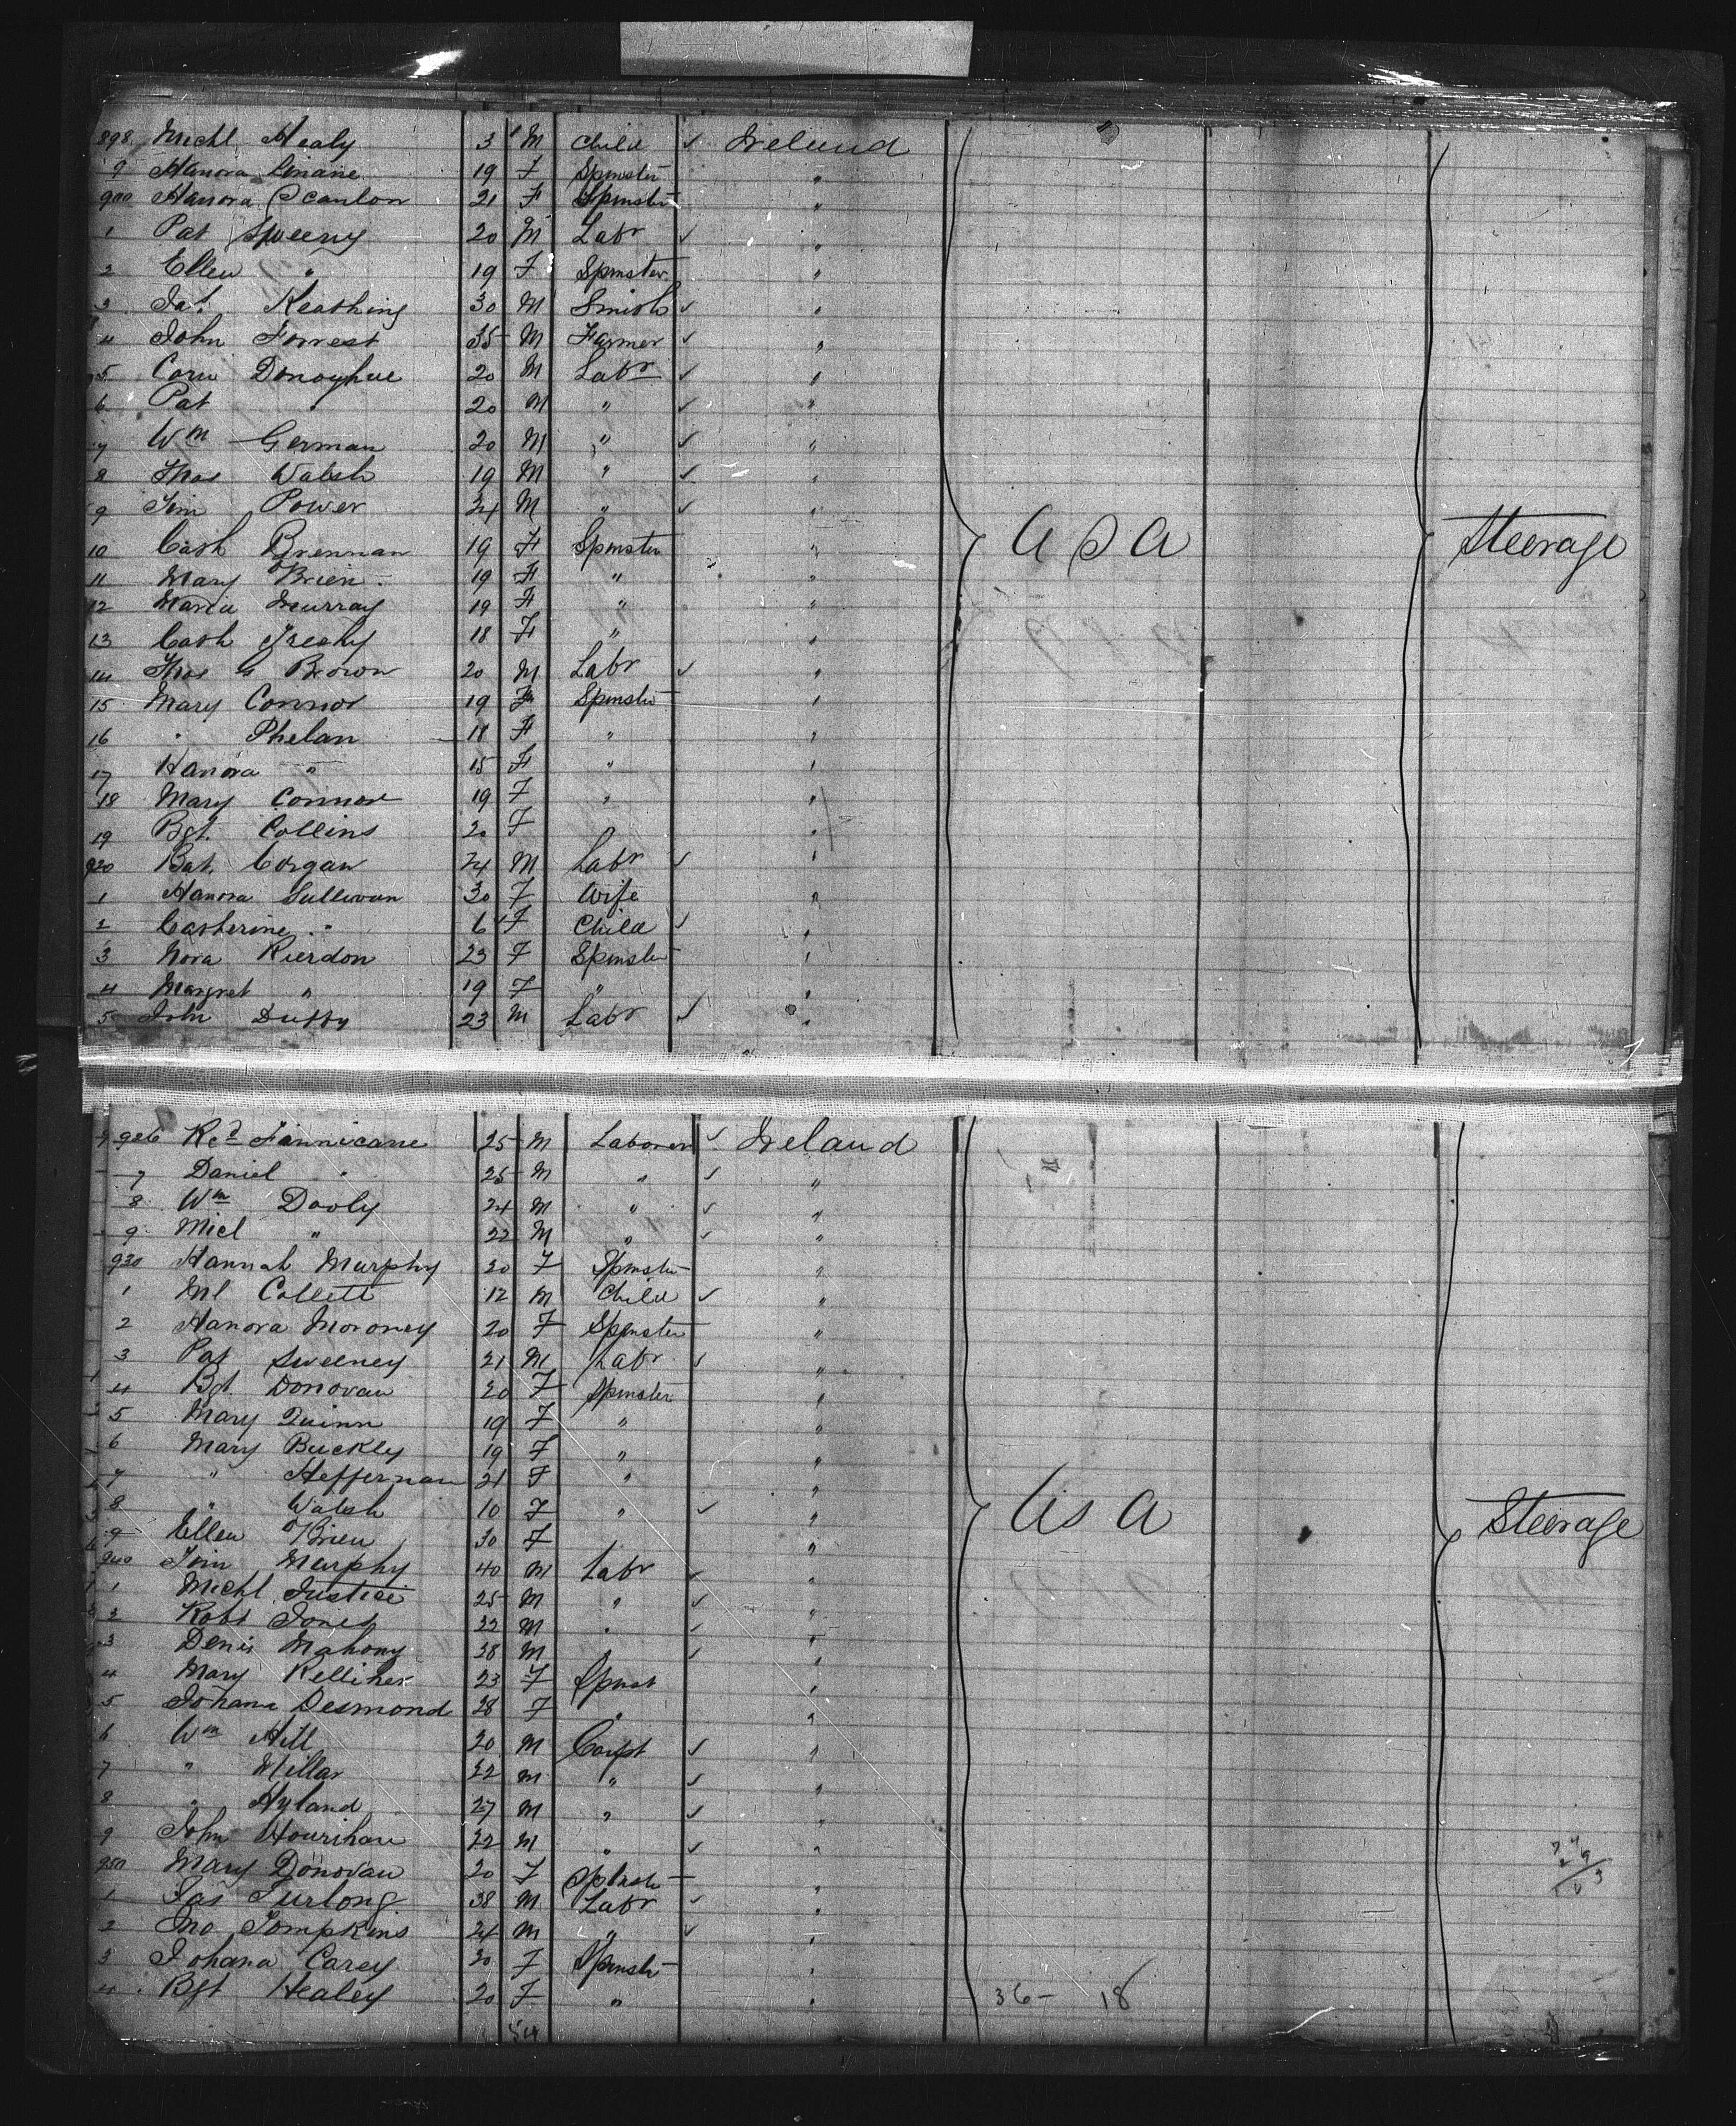 898 Michl Healy 3 M Child ✓ Ireland
9 Hanora Linane 19 F Spinster "
900 Hanora Scanlon 21 F Spinster "
1 Pat Sweeny 20 M Labr ✓ "
2 Ellen " 19 F Spinster "
3 Jas. Keathing 30 M Smith ✓ "
4 John Forrest 35 M Farmer ✓ "
5 Corn Donoghue 20 M Labr ✓ "
6 Pat " 20 M " ✓ "
7 Wm German 20 M " ✓ "
8 Thos Walsh 19 M " ✓ "
9 Tim Power 24 M " ✓ "
10 Cath Brennan 19 F Spinster " U S A Steerage
11 Mary O'Brien 19 F " "
12 Maria Murray 19 F " "
13 Cath 18 F " "
14 Thos G Brown 20 M Labr ✓ "
15 Mary Connor 19 F Spinster "
16 " Phelan 18 F " "
17 Hanora " 15 F " "
18 Mary Connor 19 F " "
19 Bgt. Collins 20 F "
920 Bat. Corgan 24 M Labr ✓ "
1 Hanora Sullivan 30 F Wife "
2 Catherine " 6 F Child ✓ "
3 Nora Rierdon 23 F Spinster "
4 Margret " 19 F " "
5 John Duffy 23 M Labr ✓ "
926 Rcd Finnicane 25 M Laborer ✓ Ireland
7 Daniel " 25 M " ✓ "
8 Wm Dooly 24 M " ✓ "
9 Micl " 22 M " ✓ "
930 Hannah Murphy 20 F Spinster "
1 Ml Collett 12 M Child ✓ "
2 Hanora Moroney 20 F Spinster "
3 Pat Sweeney 21 M Labr ✓ "
4 Bgt Donovan 20 F Spinster "
5 Mary Quinn 19 F " "
6 Mary Buckley 19 F " "
7 " Heffernan 21 F " "
8 " Walsh 10 F " ✓ " U S A Steerage
9 Ellen O'Brien 30 F "
940 Tim Murphy 40 M Labr ✓ "
1 Michl Justice 25 M " ✓ "
2 Robt Jones 22 M " ✓ "
3 Denis Mahony 28 M ✓ "
4 Mary Kelliher 23 F Spinst "
5 Johana Desmond 28 F " "
6 Wm Hill 20 M Carpt ✓ "
7 " Millar 22 M " ✓ "
8 " Hyland 27 M " ✓ "
9 John Hourihan 22 M " ✓ "
950 Mary Donovan 20 F Spinster "
1 Jas Furlong 38 M Labr ✓ "
2 Jno Tompkins 24 M " ✓ "
3 Johana Carey 20 F Spinster "
4 Bgt Healey 20 F " " 36 - 18
54